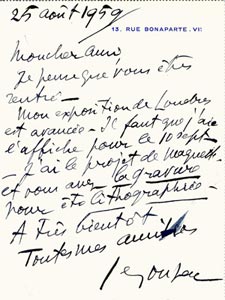 25 août 1959
13, RUE BONAPARTE. VI
Mon cher ami,
Je pense que vous êtes
rentré —
Mon exposition de Londres
est avancée — Il faut que j'aie
l'affiche pour le 10 sept —
J'ai le projet de maquette
et vous avez la gravure
pour être lithographiée —
A très bientôt
Toutes mes amitiés
Segonzac